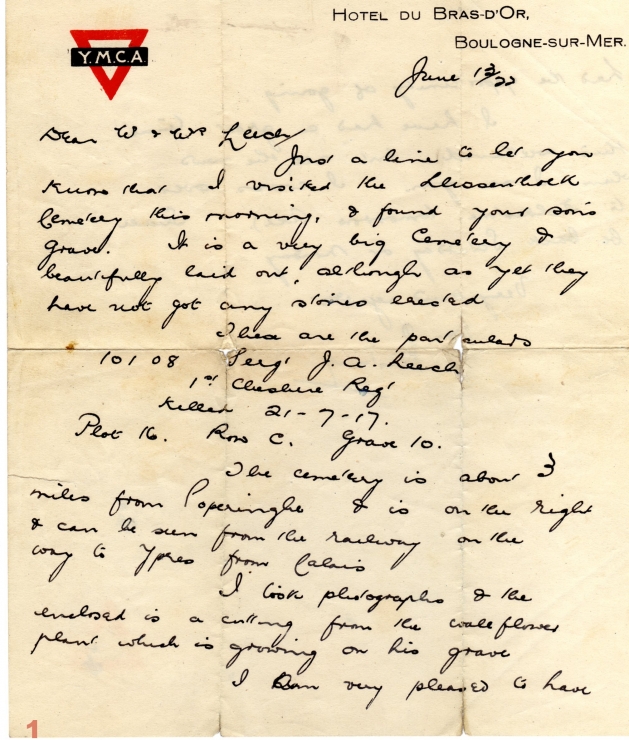 HOTEL DU BRAS-D'OR,
BOULOGNE-SUR-MER.
Y.M.C.A.
June 13/22
Dear Mr & Mrs Leech
Just a line to let you
know that I visited the Lijssenthoek
Cemetery this morning, & found your son's
grave. It is a very big Cemetery &
beautifully laid out, although as yet they
have not got any stones erected
These are the particulars
10108 Sergt J. A. Leech
1st Cheshire Regt
Killed 21-7-17.
Plot 16. Row C. Grave 10.
The cemetery is about 3
miles from Poperinghe & is on the right
& can be seen from the railway on the
way to Ypres from Calais
I took photographs & the
enclosed is a cutting from the wallflower
plant which is growing on his grave
I am very pleased to have
1